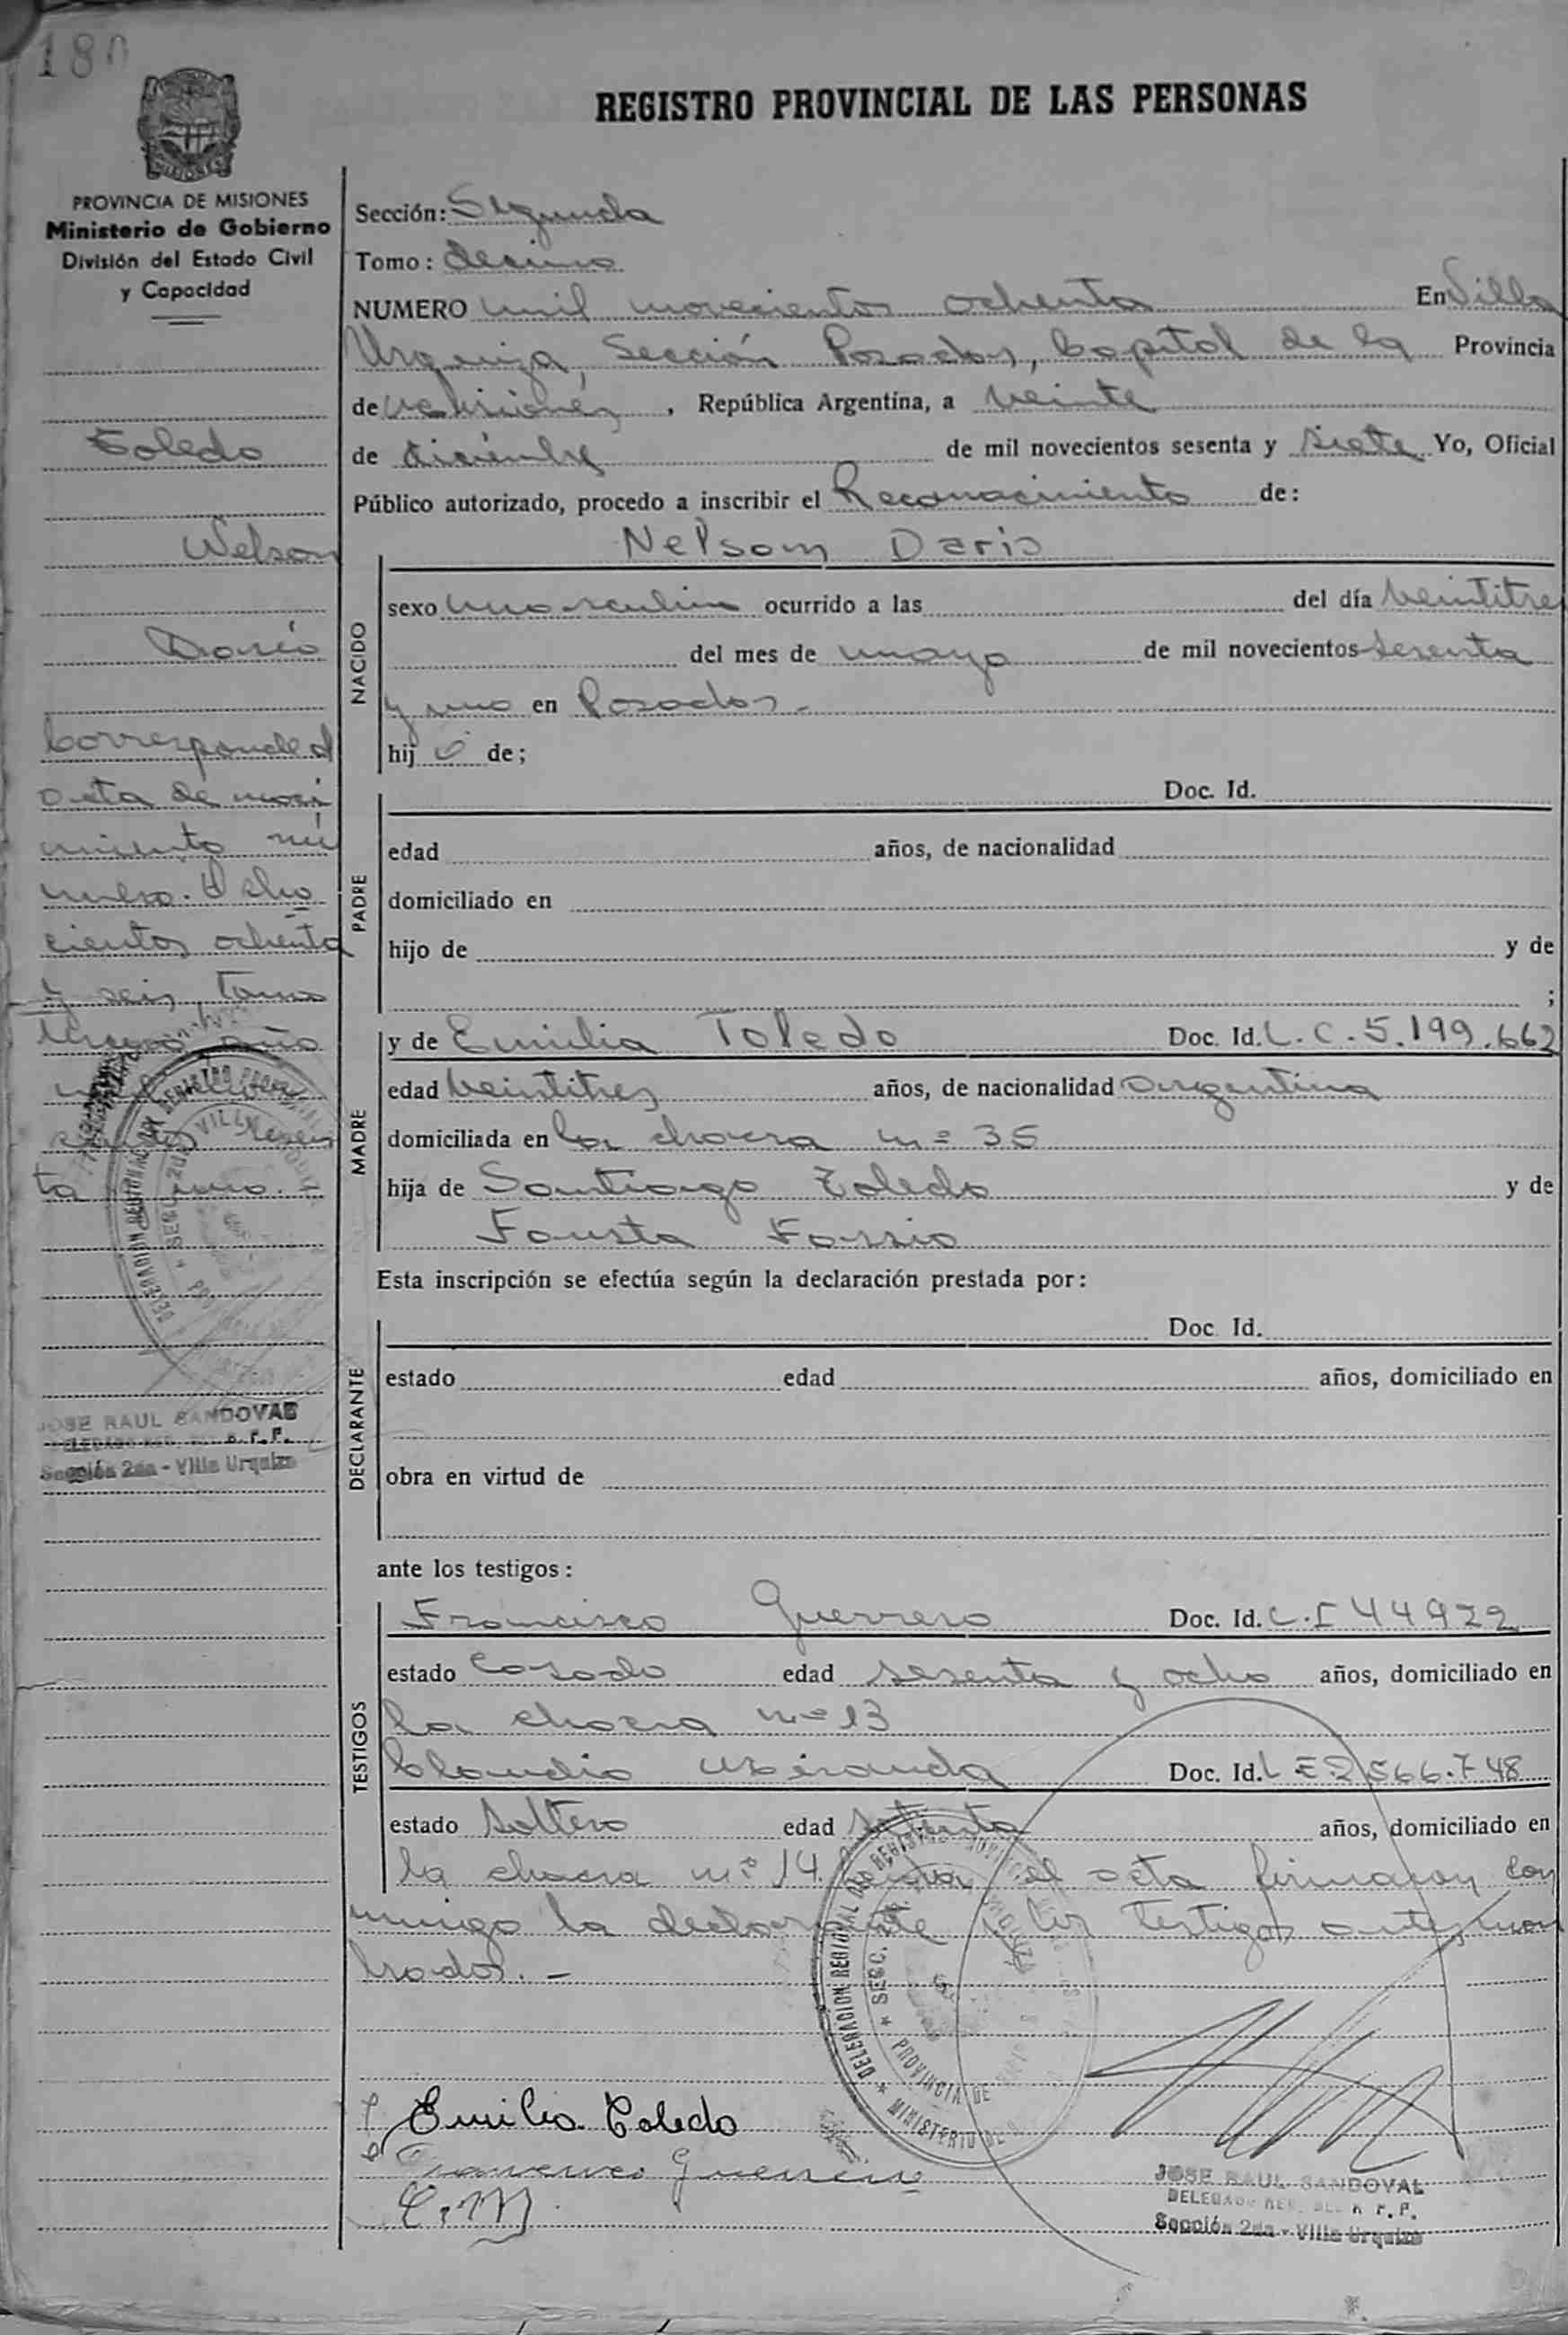 180
REGISTRO PROVINCIAL DE LAS PERSONAS
MISIONES
PROVINCIA DE MISIONES
Ministerio de Gobierno
División del Estado Civil
y Capacidad
Toledo
Nelson
Darío
Corresponde al
acta de naci
miento nú
mero. Ocho
cientos ochenta
y seis, tomo
año
ta uno.
JOSE RAUL SANDOVAL
Sección 2da - Villa Urquiza
Sección: Segunda
Tomo: decimo
NUMERO mil novecientos ochenta En Villa
Urquiza, Sección Posadas, Capital de la Provincia
de Misiones, República Argentina, a veinte
de diciembre de mil novecientos sesenta y siete Yo, Oficial
Público autorizado, procedo a inscribir el Reconocimiento de:
NACIDO
Nelsom Dario
sexo masculino ocurrido a las del día veintitres
del mes de mayo de mil novecientos sesenta
y uno en Posadas.-
hij o de;
PADRE
Doc. Id.
edad años, de nacionalidad
domiciliado en
hijo de y de
;
MADRE
y de Emilia Toledo Doc. Id. L.C.5.199.662
edad veintitres años, de nacionalidad argentina
domiciliada en la chacra nº 35
hija de Santiago Toledo y de
Fausta
Esta inscripción se efectúa según la declaración prestada por:
DECLARANTE
Doc. Id.
estado edad años, domiciliado en
obra en virtud de
ante los testigos:
TESTIGOS
Francisco Guerrero Doc. Id. C.I 44922
estado casado edad sesenta y ocho años, domiciliado en
la chacra nº 13
Claudio Miranda Doc. Id. L.E 2.566.748
estado soltero edad setenta años, domiciliado en
la chacra nº 14. el acta firmaron con
migo la declarante y los testigos antes nom
brados.-
DELEGACION REGIONAL DEL REGISTRO
SECC. 2da. VILLA URQUIZA
PROVINCIA DE
MINISTERIO DE
Emilia Toledo
Francisco Guerrero
C.M.
JOSE RAUL SANDOVAL
DELEGADO REG. DEL R. P. P.
Sección 2da - Villa Urquiza